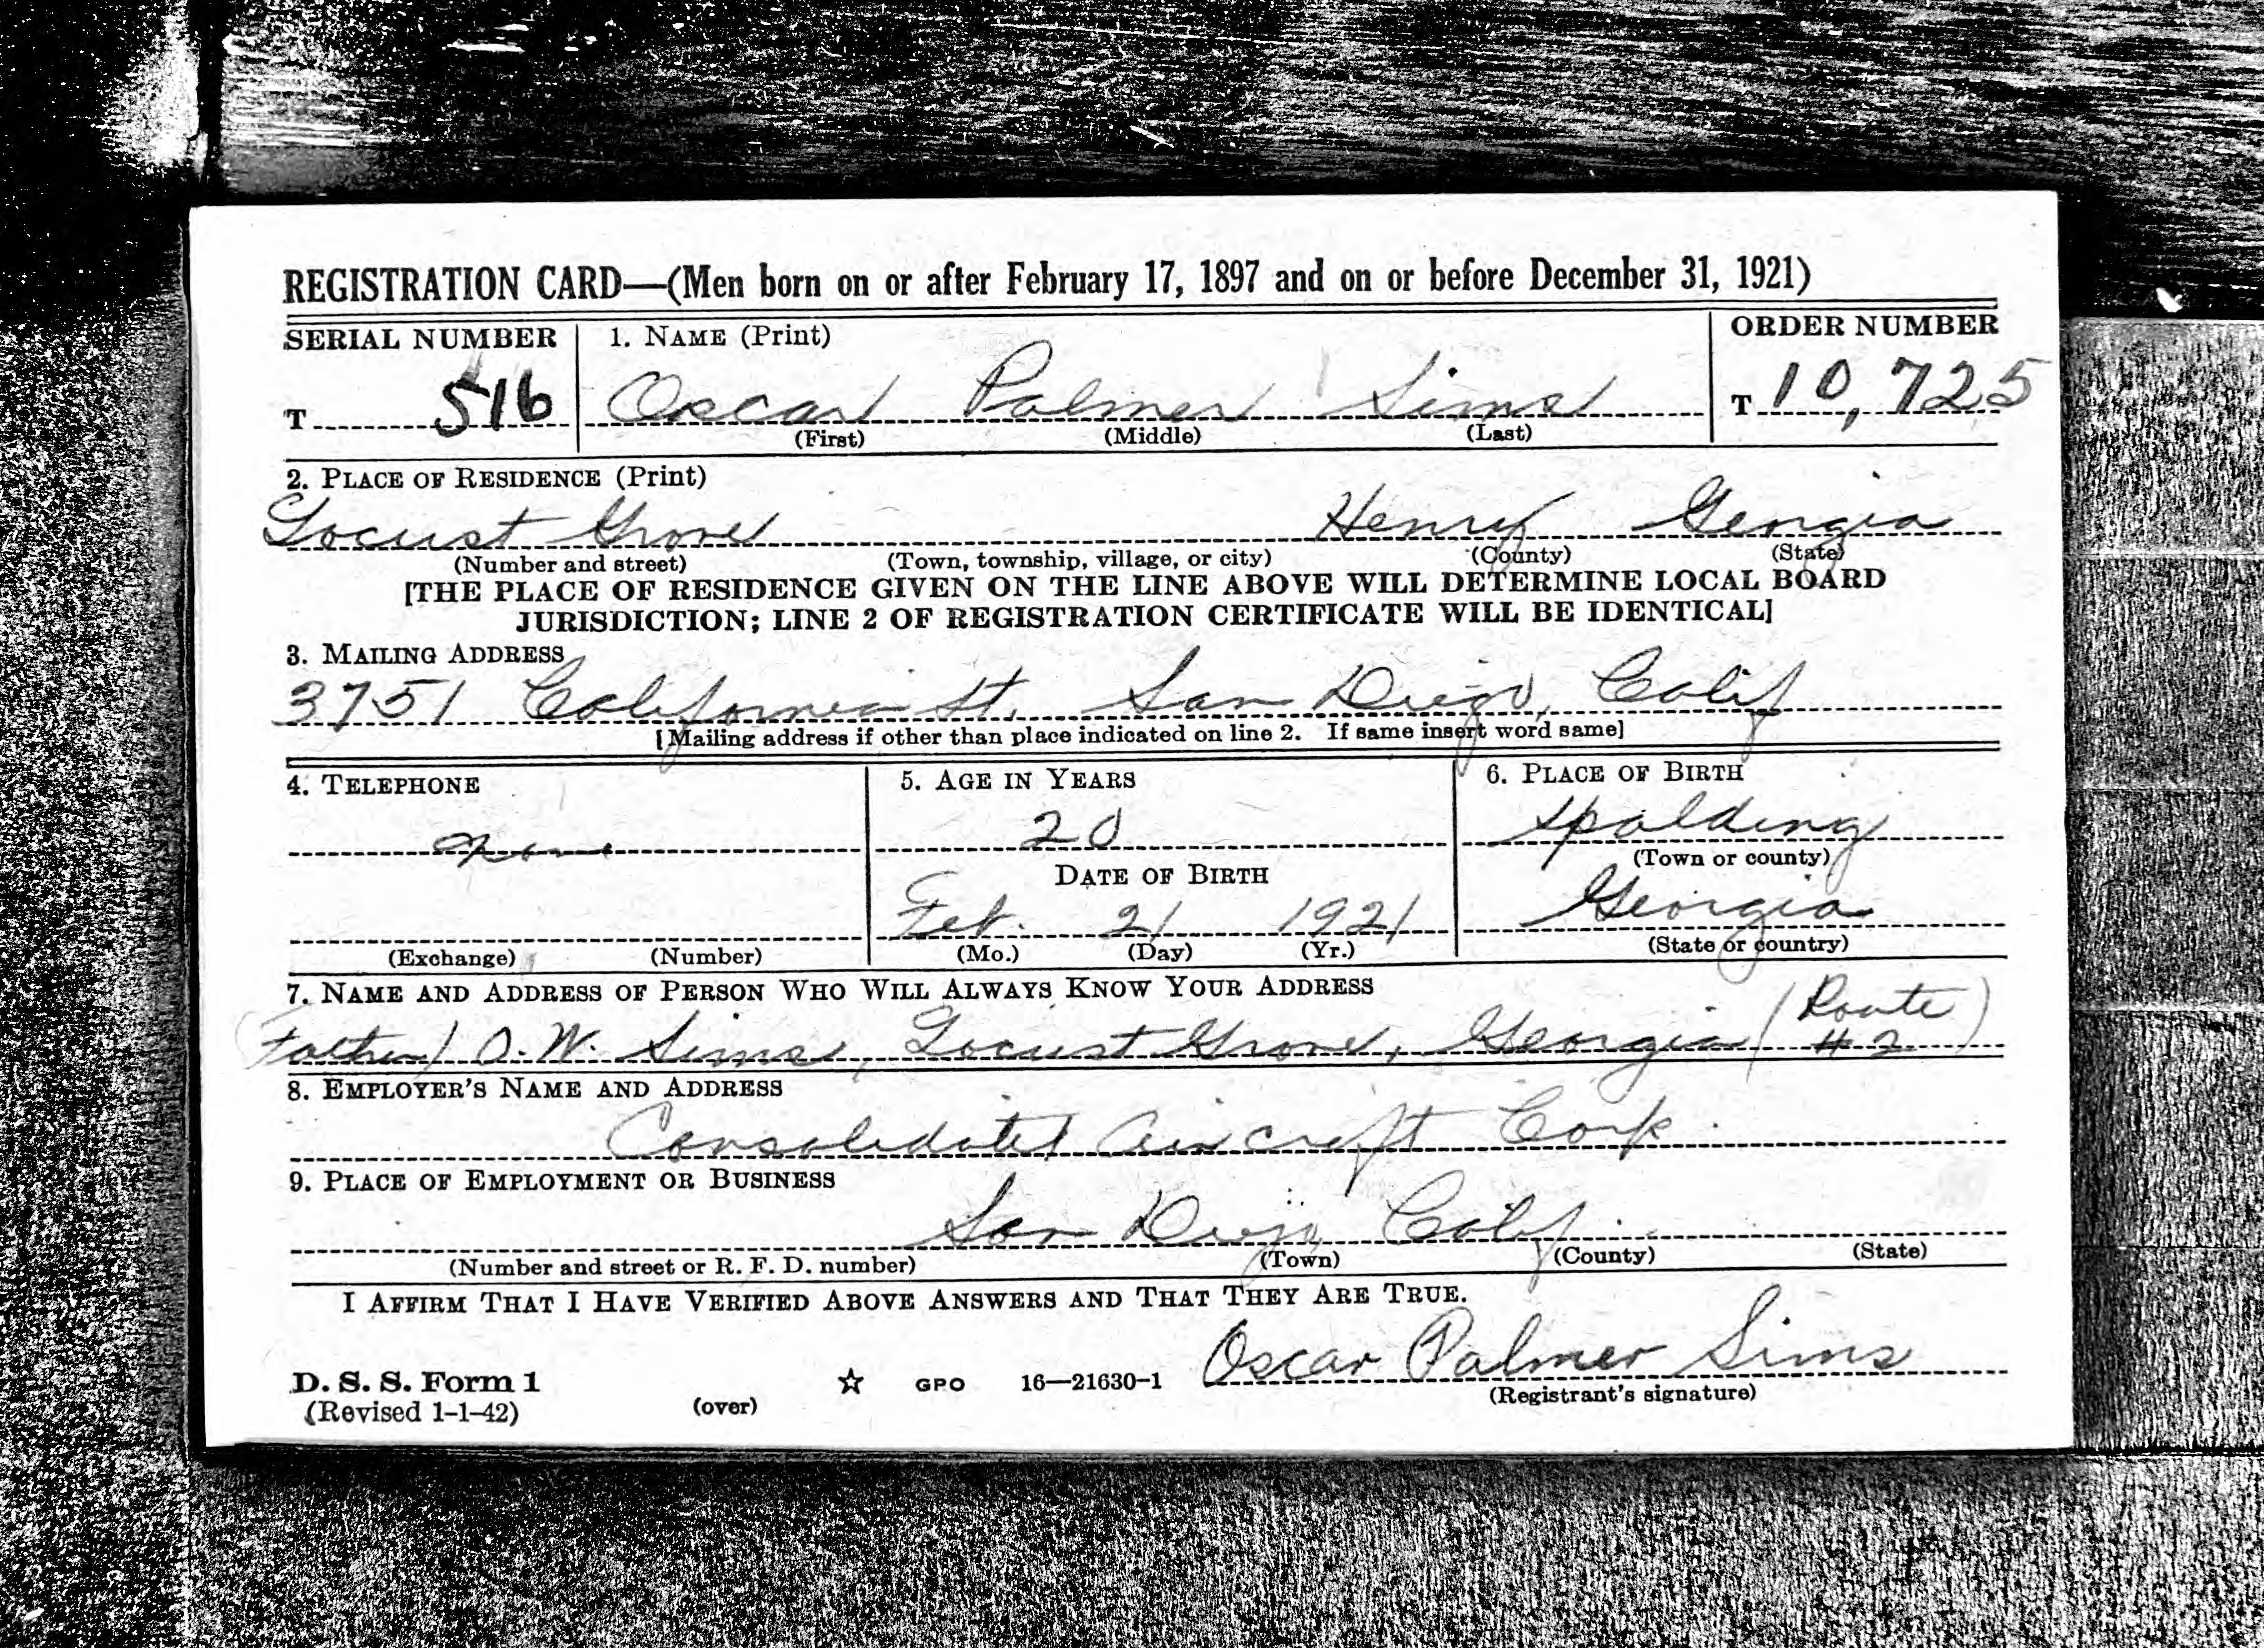 REGISTRATION CARD—(Men born on or after February 17, 1897 and on or before December 31, 1921)
SERIAL NUMBER
1. NAME (Print)
ORDER NUMBER
T 516
Oscar Palmer Sims
T 10,725
(First) (Middle) (Last)
2. PLACE OF RESIDENCE (Print)
Locust Grove Henry Georgia
(Number and street) (Town, township, village, or city) (County) (State)
[THE PLACE OF RESIDENCE GIVEN ON THE LINE ABOVE WILL DETERMINE LOCAL BOARD
JURISDICTION; LINE 2 OF REGISTRATION CERTIFICATE WILL BE IDENTICAL]
3. MAILING ADDRESS
3751 California St. San Diego, Calif
[Mailing address if other than place indicated on line 2. If same insert word same]
4. TELEPHONE
None
(Exchange) (Number)
5. AGE IN YEARS
20
DATE OF BIRTH
Feb. 21 1921
(Mo.) (Day) (Yr.)
6. PLACE OF BIRTH
Spalding
(Town or county)
Georgia
(State or country)
7. NAME AND ADDRESS OF PERSON WHO WILL ALWAYS KNOW YOUR ADDRESS
(Father) O. W. Sims, Locust Grove, Georgia (Route #2)
8. EMPLOYER'S NAME AND ADDRESS
Consolidated Aircraft Corp.
9. PLACE OF EMPLOYMENT OR BUSINESS
San Diego, Calif.
(Number and street or R. F. D. number) (Town) (County) (State)
I AFFIRM THAT I HAVE VERIFIED ABOVE ANSWERS AND THAT THEY ARE TRUE.
Oscar Palmer Sims
(Registrant's signature)
D. S. S. Form 1
(Revised 1-1-42)
(over)
☆ GPO 16—21630-1